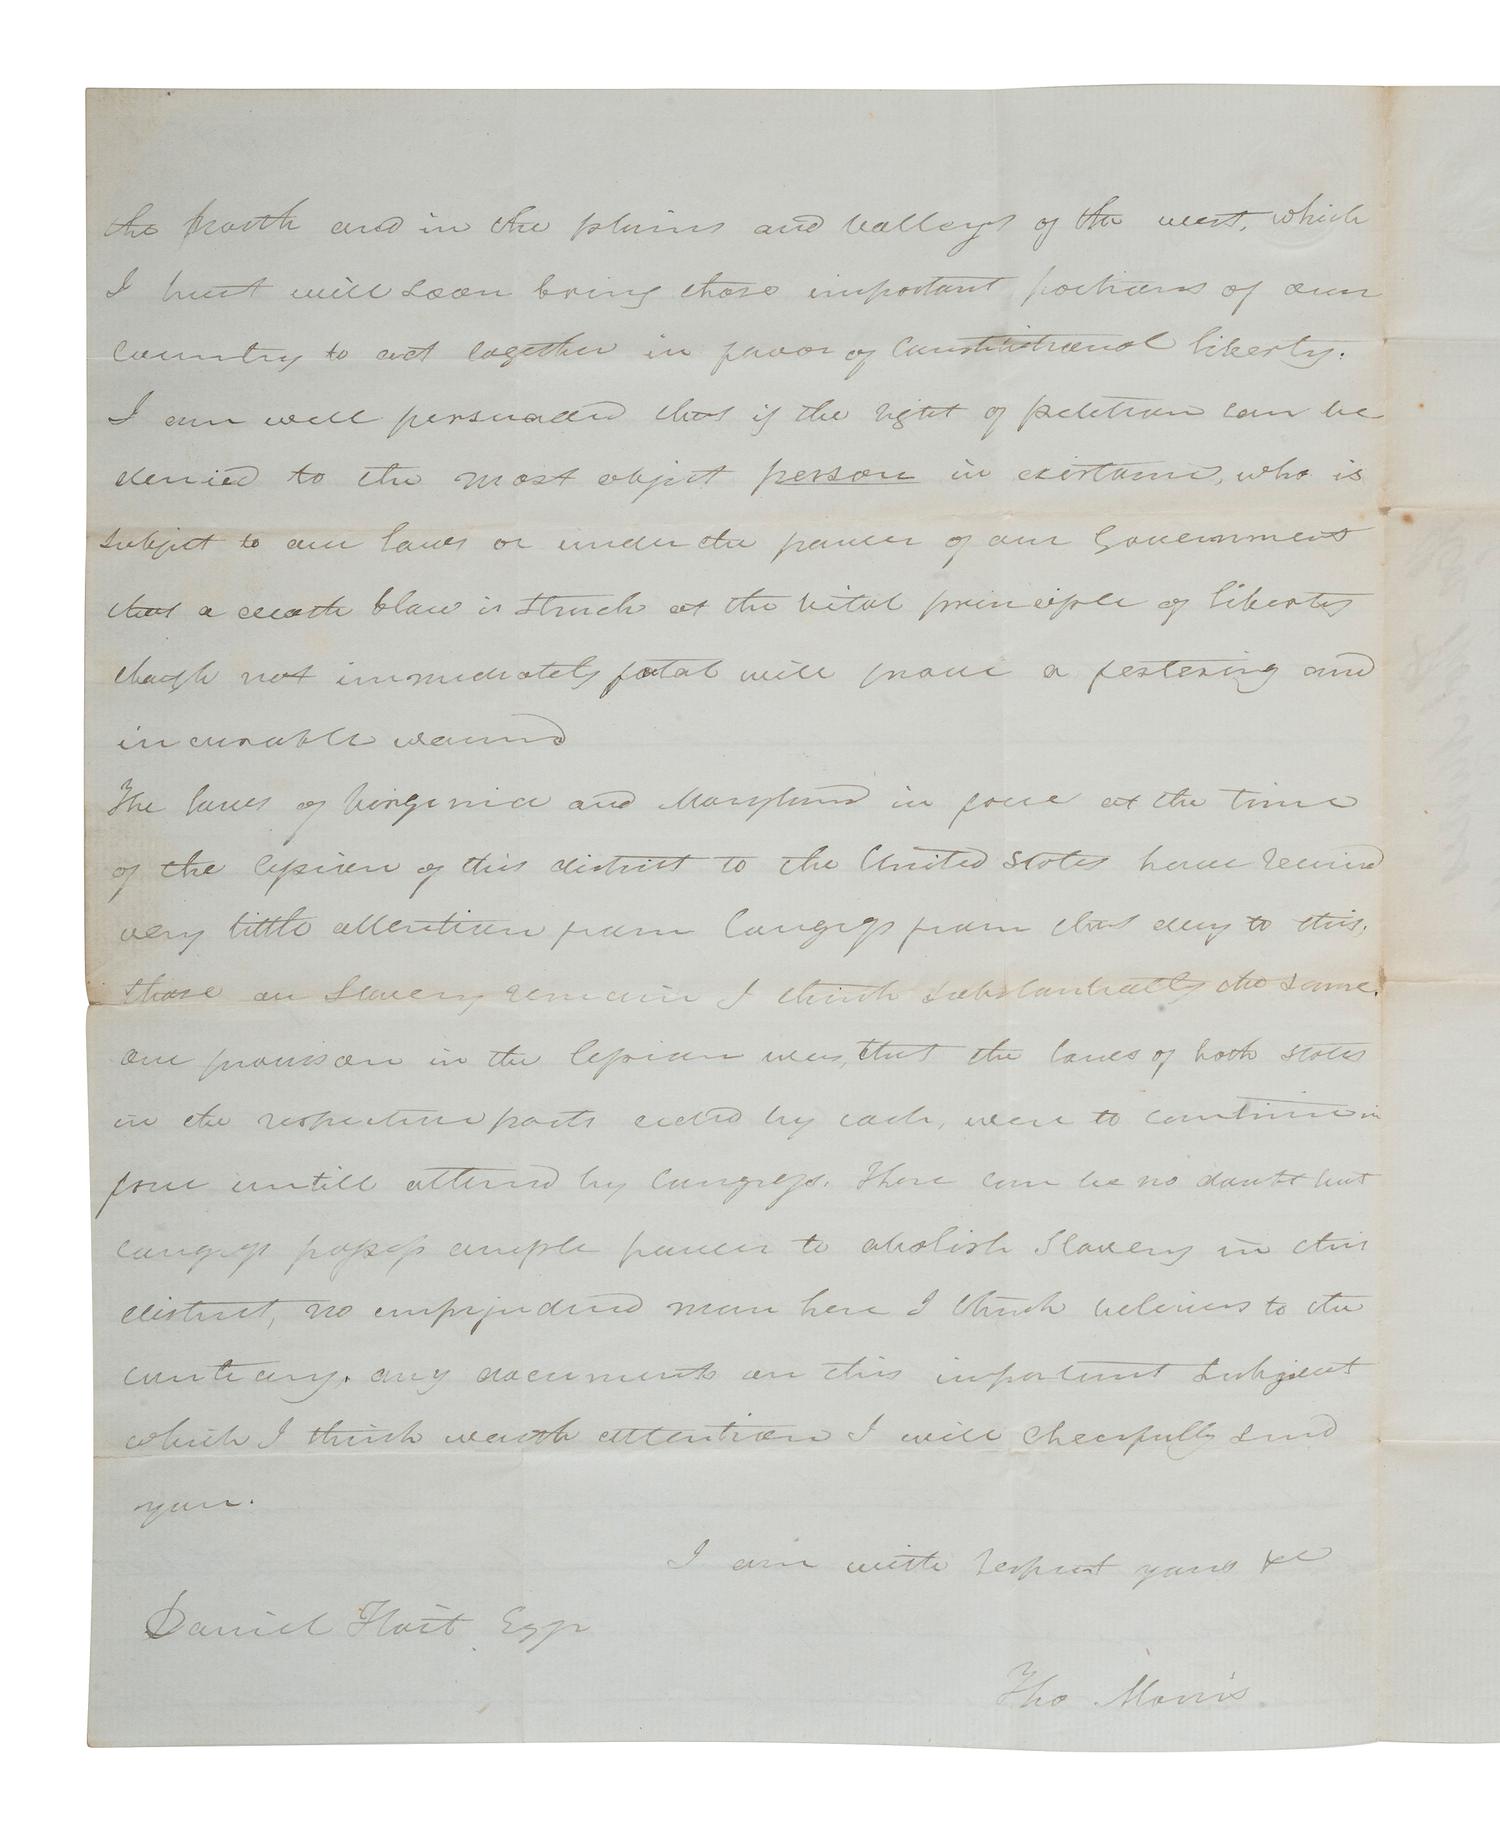 the North and in the plains and valleys of the west, which
I trust will soon bring those important portions of our
country to act together in favor of Constitutional liberty.
I am well persuaded that if the right of petition can be
denied to the most abject person in existance, who is
subject to our laws or under the power of our Government
that a death blow is struck at the vital principle of liberty
though not immediately fatal will prove a festering and
incurable wound
The laws of Virginia and Maryland in force at the time
of the Cession of this district to the United States have received
very little attention from Congress from that day to this,
those on Slavery remain I think substantially the same.
one provision in the Cession was, that the laws of both states
in the respective parts ceded by each, were to continue in
force untill altered by Congress. There can be no doubt but
Congress possess ample power to abolish Slavery in this
district, no unprejudiced man here I think believes to the
contrary. any documents on this important subject
which I think worth attention I will cheerfully send
you.
I am with respect yours &c
Daniel Hoit Esqr
Tho Morris